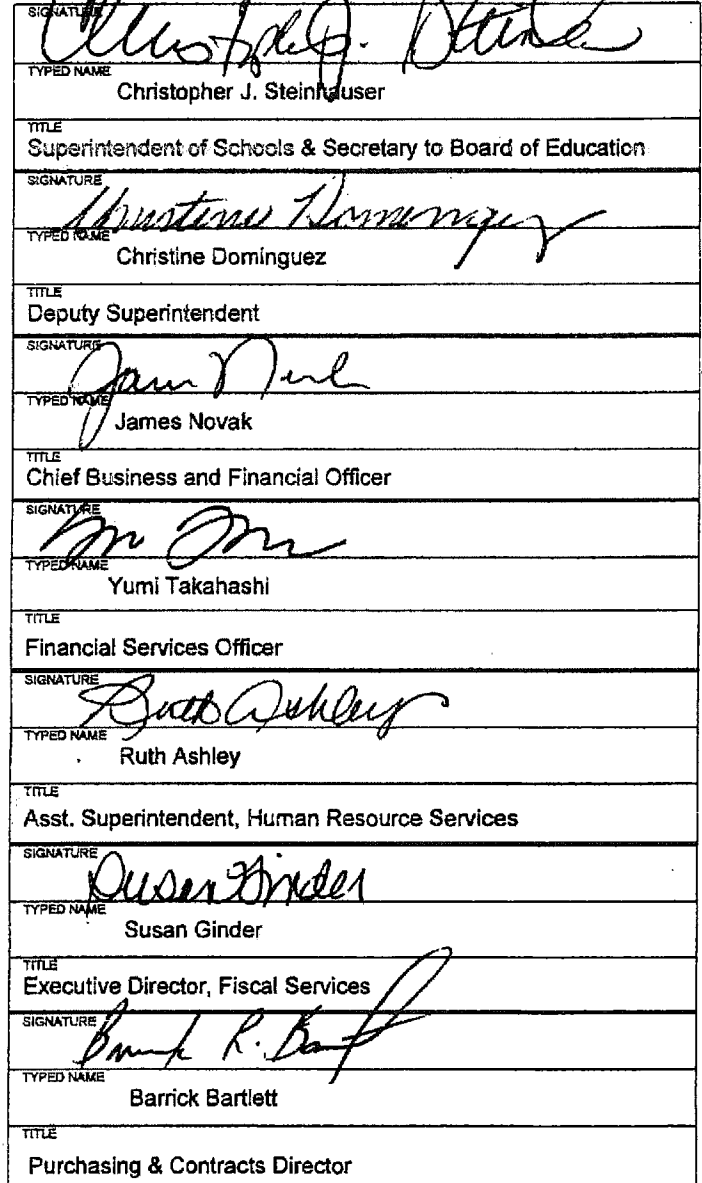 SIGNATURE
Christopher J. Steinhauser
TYPED NAME
Christopher J. Steinhauser
TITLE
Superintendent of Schools & Secretary to Board of Education
SIGNATURE
Christine Dominguez
TYPED NAME
Christine Dominguez
TITLE
Deputy Superintendent
SIGNATURE
TYPED NAME
James Novak
TITLE
Chief Business and Financial Officer
SIGNATURE
TYPED NAME
Yumi Takahashi
TITLE
Financial Services Officer
SIGNATURE
Ruth Ashley
TYPED NAME
Ruth Ashley
TITLE
Asst. Superintendent, Human Resource Services
SIGNATURE
Susan Ginder
TYPED NAME
Susan Ginder
TITLE
Executive Director, Fiscal Services
SIGNATURE
TYPED NAME
Barrick Bartlett
TITLE
Purchasing & Contracts Director